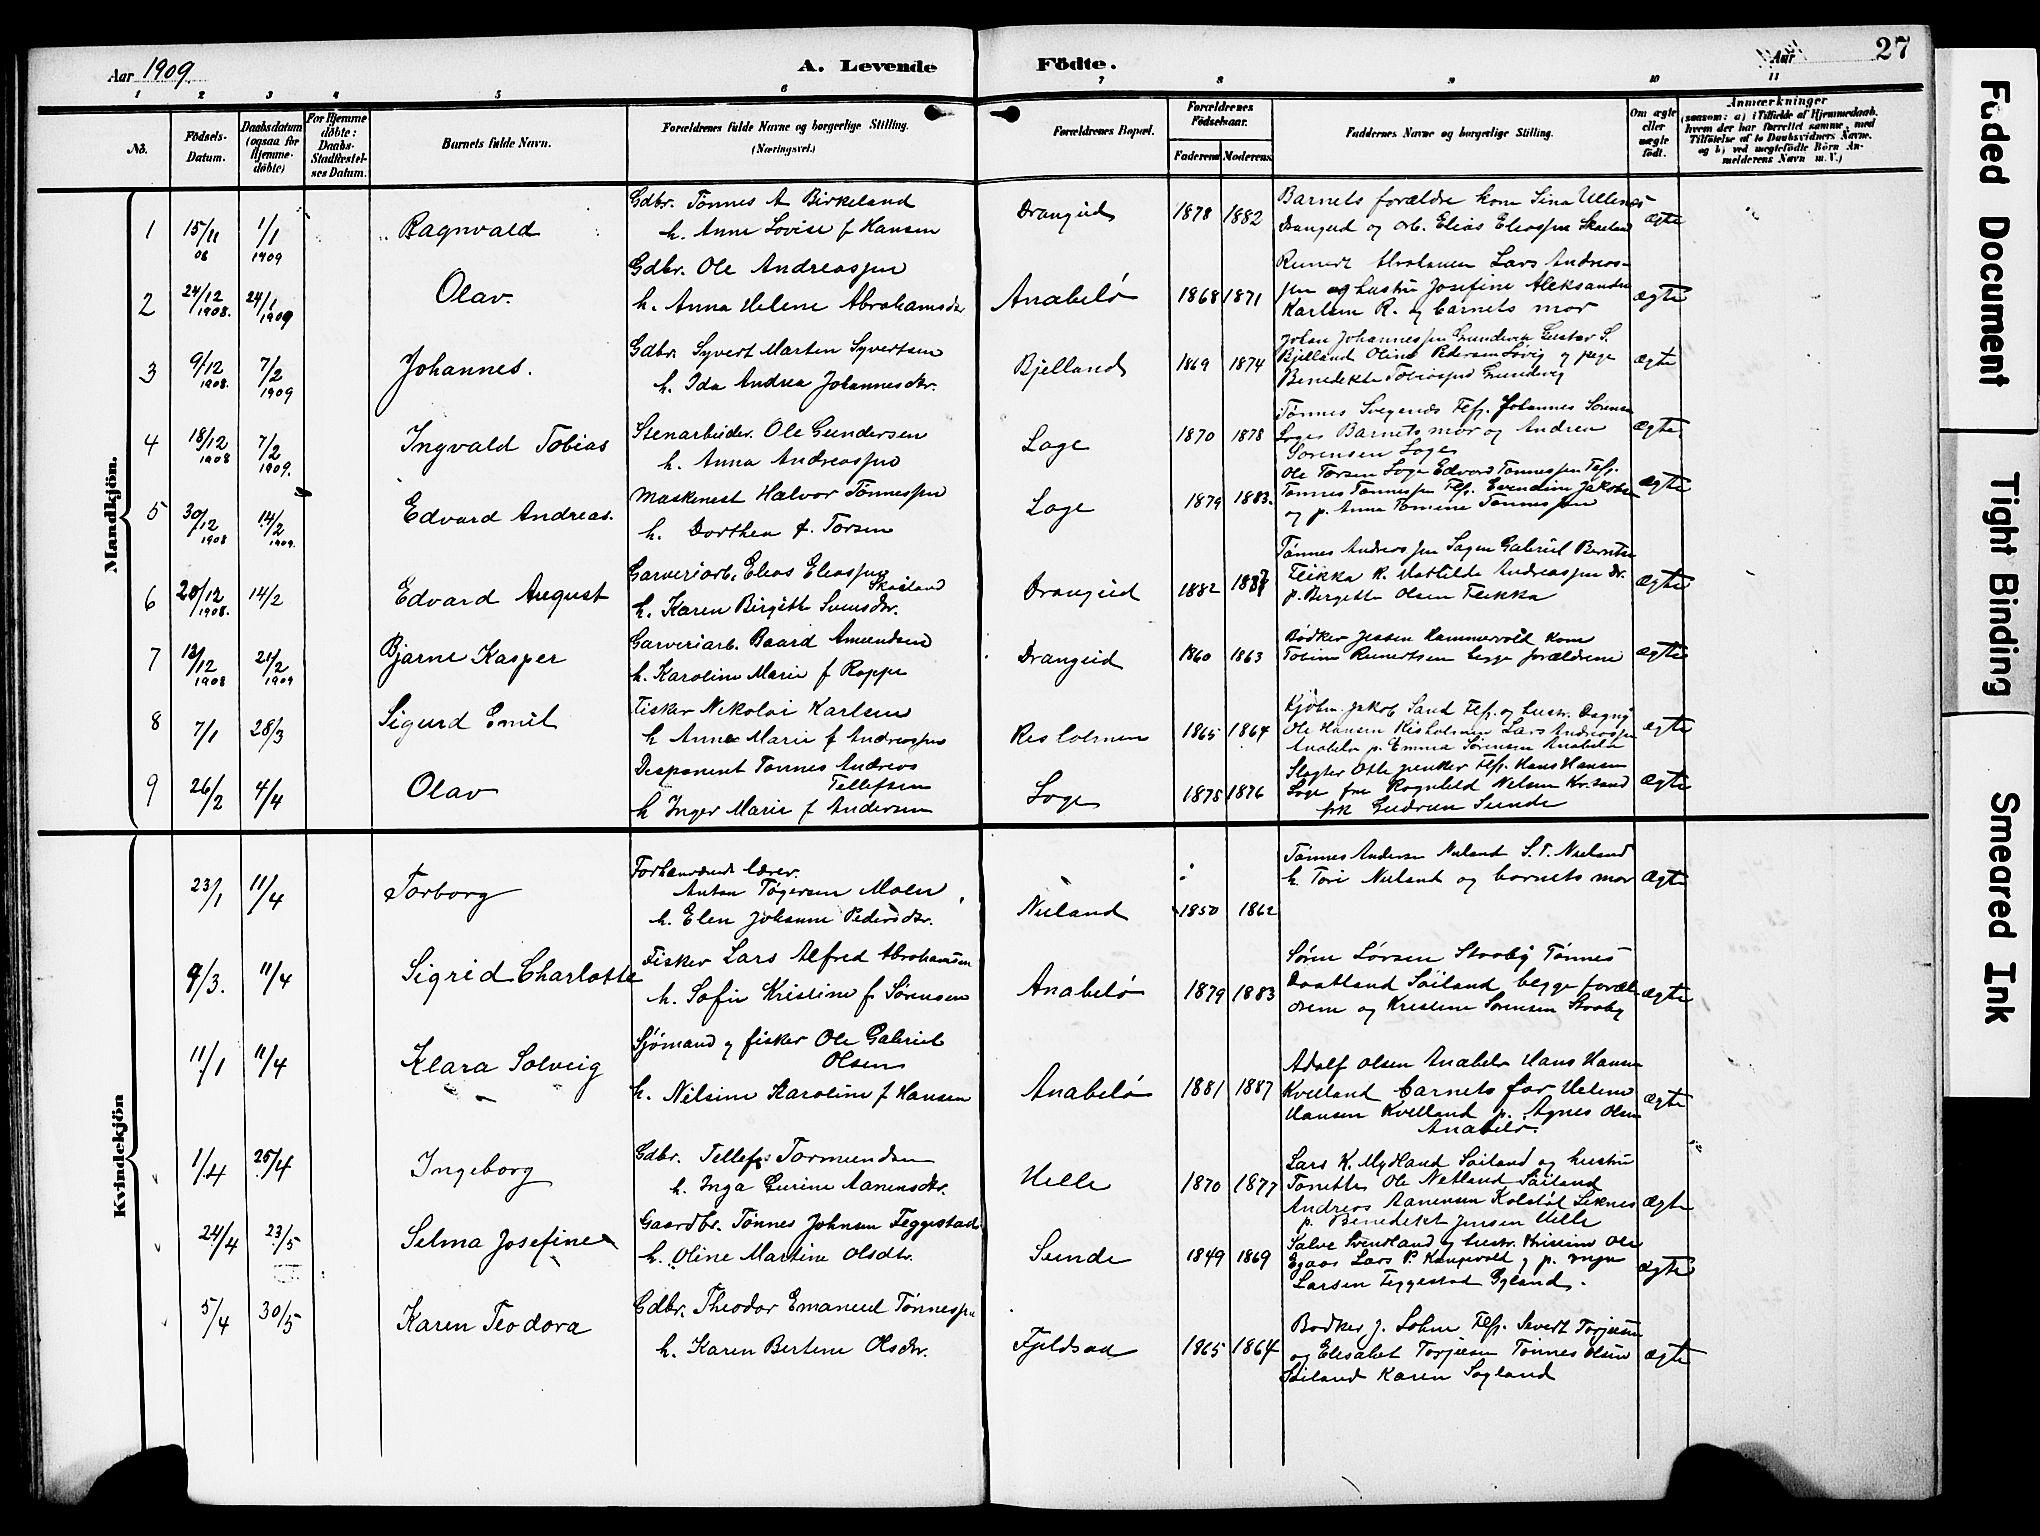 Aar 1909
A. Levende
Födte.
Aar
27
1 2 3 4 5 6 7 8 9 10 11
No.
Födsels-Datum.
Daabsdatum (ogsaa for Hjemme-döbte)
For Hjemme döbte: Daabs-Stadfæstel-ses Datum.
Barnets fulde Navn.
Forældrenes fulde Navne og borgerlige Stilling. (Næringsvei.)
Forældrenes Bopæl.
Forældrenes Födselsaar.
Faderens Moderens
Faddernes Navne og borgerlige Stilling.
Om ægte eller uægte födt.
Anmærkninger
(saasom: a) i Tilfælde af Hjemmedaab, hvem der har forrettet samme, med Tilföielse af to Daabsvidners Navne, og b) ved uægtefödte Börn An-melderens Navn m. V.)
Mandkjön.
1 15/11 08 1/1 1909 Ragnvald
Gdbr. Tønnes A Birkeland
h. Anne Lovise f Hansen
Drangeid 1878 1882
Barnets forældre kone Sina Ullenes
Drangeid og arb. Elias Eliassen Skailand
ægte
2 24/12 1908. 24/1 1909 Olav.
Gdbr. Ole Andreassen
h. Anna Helene Abrahamsdtr
Anabelø 1868 1871
Lars Andreas-
sen og hustru Josefine Aleksander
Karlsen R. og barnets mor
ægte
3 9/12 1908. 7/2 1909 Johannes.
Gdbr. Syvert Martin Syvertsen
h. Ida Andrea Johannesdtr.
Bjelland 1869 1874
Johan Johannessen Gustav S.
Bjelland Oline Pedersen Løvig og pige
Benedikte Tobiassen
ægte
4 18/12 1908 7/2 1909. Ingvald Tobias
Stenarbeider. Ole Gundersen
h. Anna Andreassen
Loge 1870 1878
Tønnes Svegenes Flf. Johannes Sørensen
Loge Barnets mor og Andrea
Sørensen Loge
ægte
5 30/12 1908 14/2 1909. Edvard Andreas.
Maskinest Halvor Tønnessen
h. Dorthea f. Torsen
Loge 1879 1883.
Ole Torsen Loge Edvard Tønnessen Flf.
Tønnes Tønnessen Flf. Jakobsen
og p. Anna Tomine Tønnessen
ægte
6 20/12 1908. 14/2 Edvard August
Garveriarb. Elias Eliassen
Skailand
h. Karen Birgitte Svensdtr.
Drangeid 1882 1887
Tønnes Andreassen Gabriel Berntsen
Flikka K. Mathilde Andreassen Dr.
p. Bergette Olsen Flikka
ægte
7 13/12 1908 21/2 1909 Bjarne Kasper
Garveriarb. Baard Amundsen
h. Karoline Marie f Roppe
Drangeid 1860 1863
Bødker Jessen Hammervold kone
Tobine Reinertsen begge forældrene
ægte
8 7/1 28/3 Sigurd Emil
Fisker Nikolai Karlsen
h Anne Marie f Andreassen
Risholmen 1865 1864
Kjøbm. Jakob Sand Flf. og hustr. Dagny
Ole Hansen Risholmen Lars Andreassen
Anabelø p. Emma Sørensen Anabelø
ægte
9 26/2 4/4 Olav
Disponent Tønnes Andreas
Tellefsen
h Inger Marie f Andersen
Loge 1875 1876
Slagter Flf. Hans Hansen
Loge fru Ragnhild Nilsen Kr.sand
frk Gudrun Sunde
ægte
Kvindekjön
23/1 11/4 Torborg
Forhenværende lærer.
Anton Tøgersen Moen
h. Elen Johanne Pedersdtr.
Nuland 1850 1862
Tønnes Andersen Nuland S. T. Nuland
h. Tori Nuland og barnets mor
ægte
9/3. 11/4 Sigrid Charlotte
Fisker Lars Alfred Abrahamsen
h. Sofie Kristine f Sørensen
Anabelø 1879 1883
Søren Larsen Stooby Tønnes
Daatland Søiland begge foræl-
drene og Kristine Sørensen Stooby
ægte
11/1 11/4 Klara Solveig
Sjømand og fisker Ole Gabriel
Olsen
h. Nilsine Karoline f Hansen
Anabelø 1881 1887
Adolf Olsen Anabelø Hans Hansen
Kvelland barnets far Helene
Hansen Kvelland p. Agnes Olsen
Anabelø.
ægte
1/4 25/4 Ingeborg
Gdbr. Tellef Tormundsen
h. Inga Gurine Aanensdtr.
Helle 1870 1877
Lars K. Mydland Søiland og hustru
Tonette Ole Netland Søiland
Andreas Aanensen Kolstøl Liknes
p. Benedikt Jensen Helle
ægte
24/4 23/5 Selma Josefine
Gaardbr. Tønnes Johnsen Feggestad
h. Oline Martine Olsdtr.
Sunde 1849 1869
Salve Svendland og hustr. Kristine Ole
Egaas Lars P. og p.
Larsen Feggestad Gyland.
ægte
5/4 30/5 Karen Teodora
Gdbr. Theodor Emanuel Tønnessen
h. Karen Bertine Olsdtr.
Fjeldsaa 1865 1864
Bødker J. Lohne Flf. Severt Torjusen
og Elisabet Torjusen Tønnes Olsen
Søiland Karen Søyland
ægte
Faded Document
Tight Binding
Smeared Ink